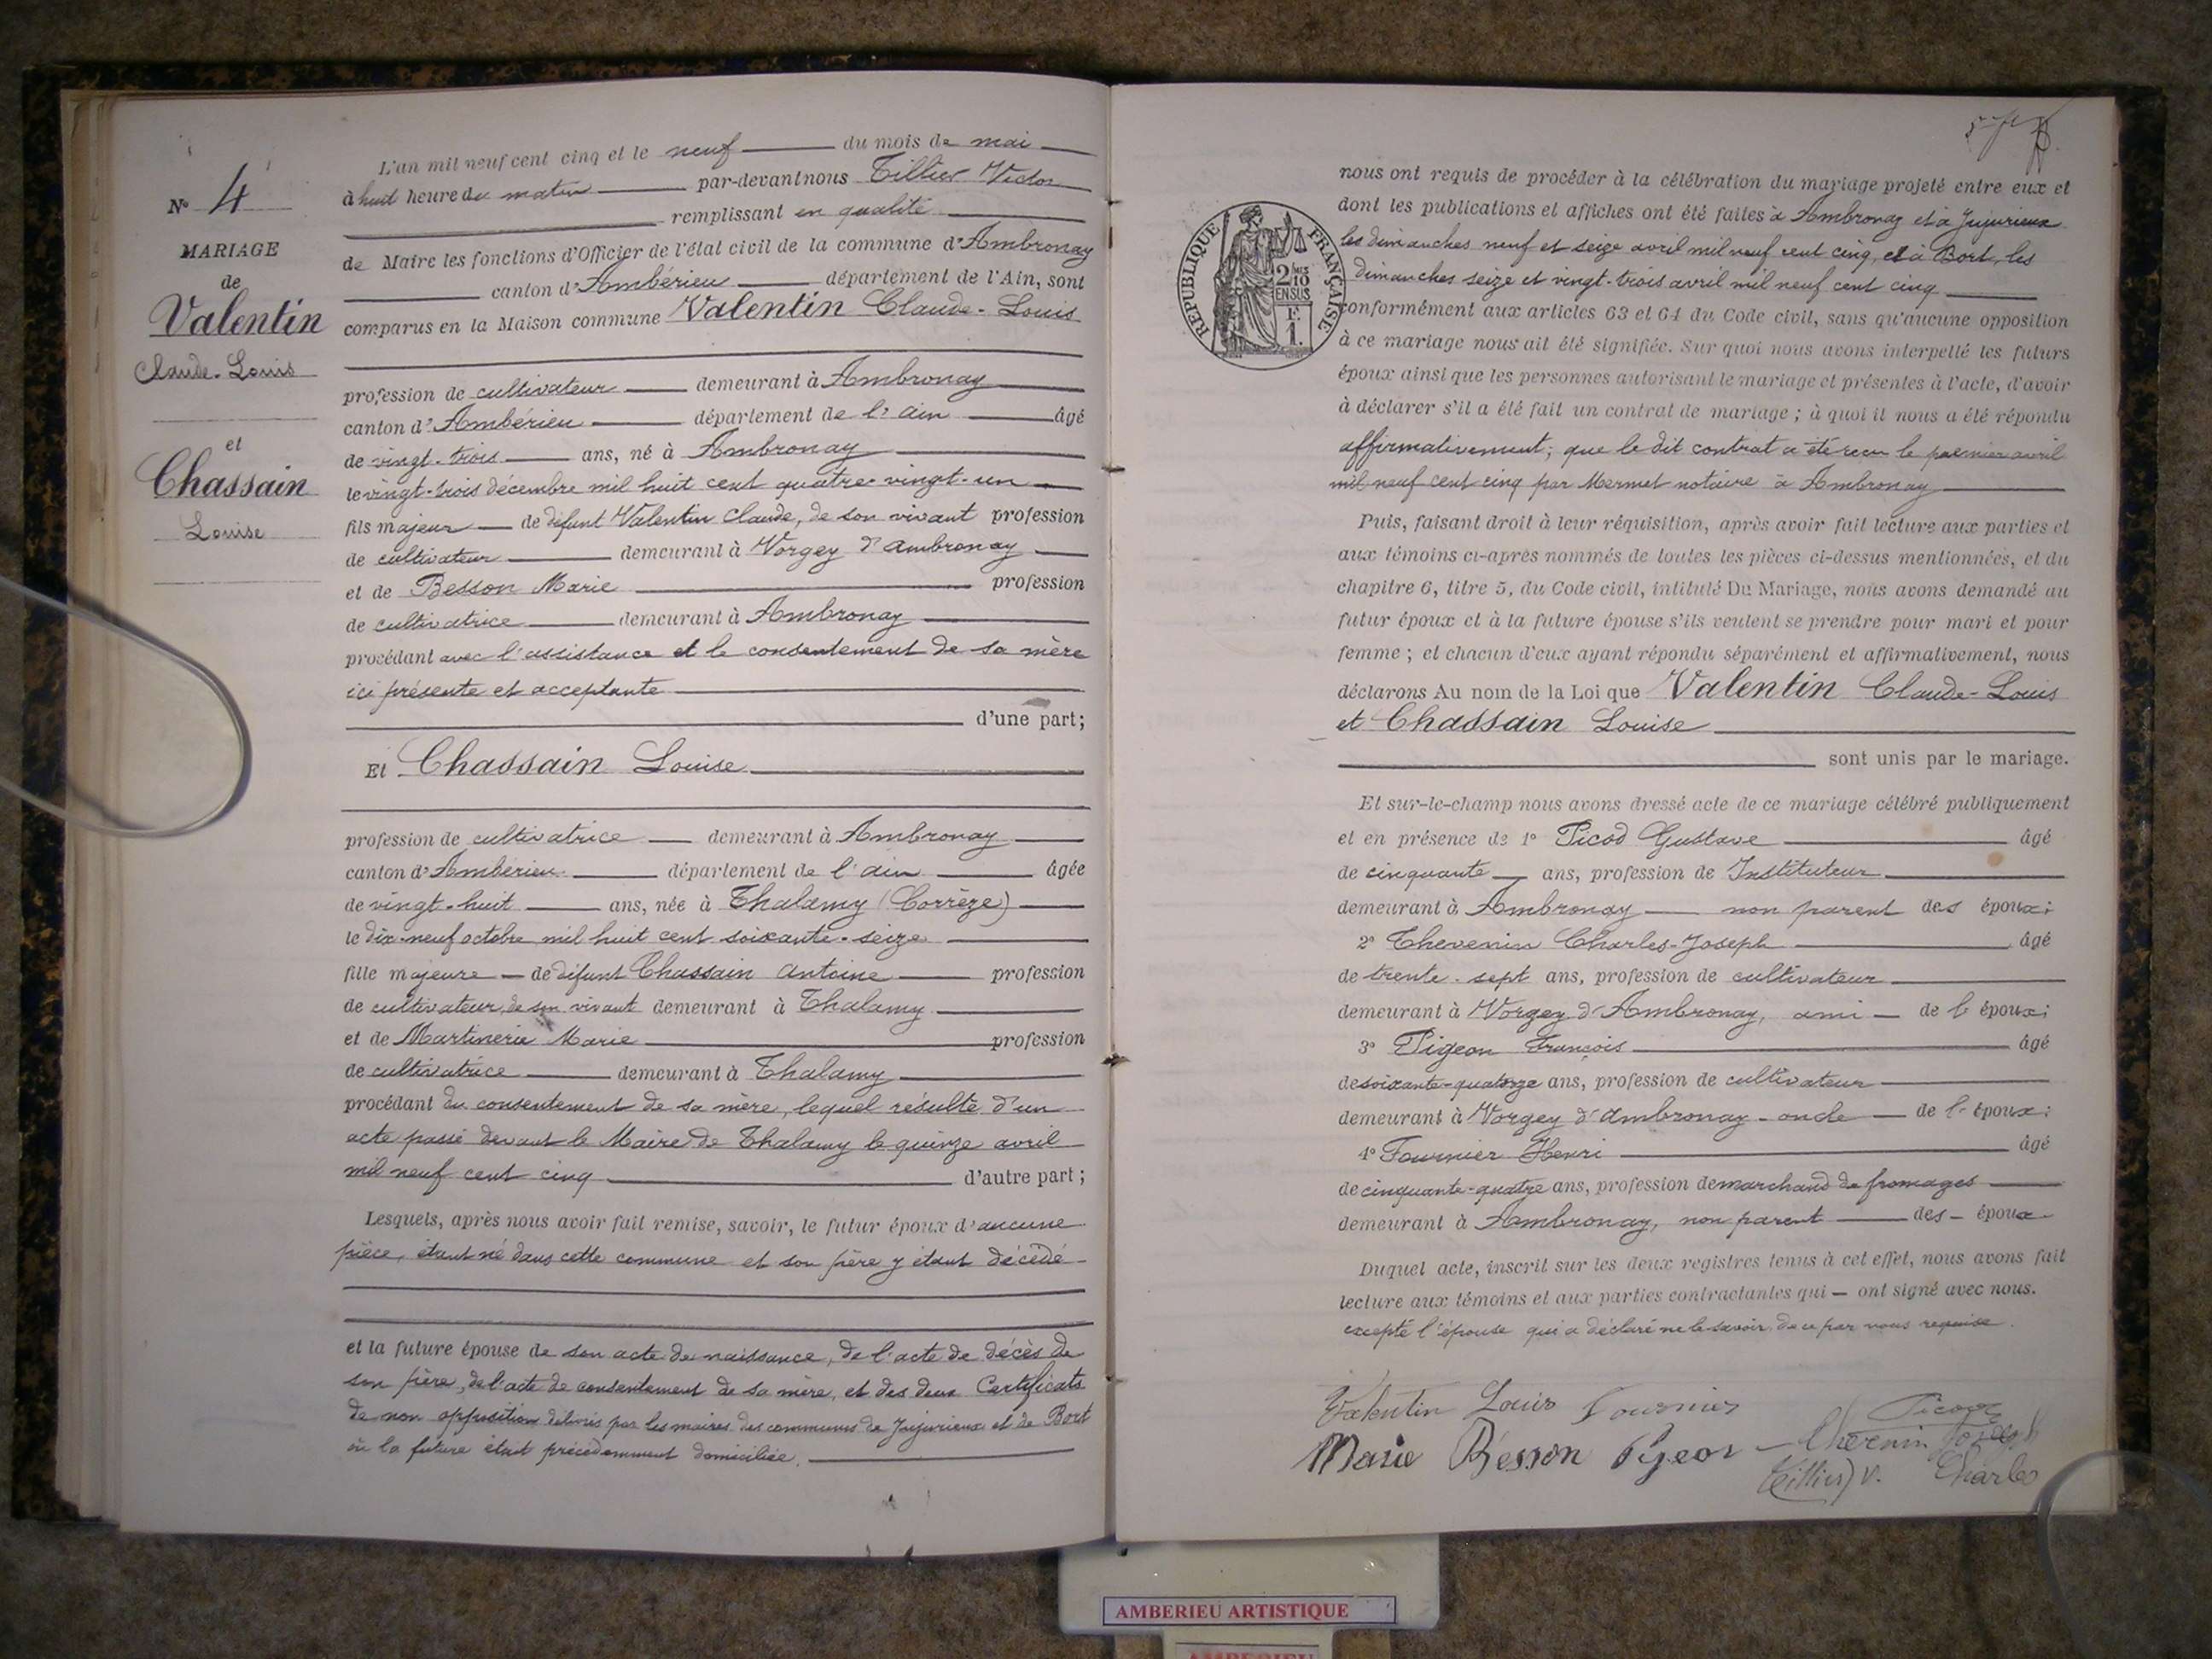 N° 4
MARIAGE
de
Valentin
Claude-Louis
et
Chassain
Louise
L'an mil neuf cent cinq et le neuf du mois de mai
à huit heure du matin par-devant nous Tillier Victor
remplissant en qualité
de Maire les fonctions d'Officier de l'état civil de la commune d'Ambronay
canton d'Ambérieu département de l'Ain, sont
comparus en la Maison commune Valentin Claude-Louis
profession de cultivateur demeurant à Ambronay
canton d'Ambérieu département de l'ain âgé
de vingt-trois ans, né à Ambronay
le vingt-trois décembre mil huit cent quatre-vingt-un
fils majeur de défunt Valentin Claude, de son vivant profession
de cultivateur demeurant à Vorgey d'Ambronay
et de Besson Marie profession
de cultivatrice demeurant à Ambronay
procédant avec l'assistance et le consentement de sa mère
ici présente et acceptante
d'une part;
Et Chassain Louise
profession de cultivatrice demeurant à Ambronay
canton d'Ambérieu département de l'ain âgée
de vingt-huit ans, née à Thalamy (Corrèze)
le dix-neuf octobre mil huit cent soixante-seize
fille majeure de défunt Chassain Antoine profession
de cultivateur, de son vivant demeurant à Thalamy
et de Martinerie Marie profession
de cultivatrice demeurant à Thalamy
procédant du consentement de sa mère, lequel résulte d'un
acte passé devant le Maire de Thalamy le quinze avril
mil neuf cent cinq d'autre part;
Lesquels, après nous avoir fait remise, savoir, le futur époux d'aucune
pièce, étant né dans cette commune et son père y étant décédé
et la future épouse de son acte de naissance, de l'acte de décès de
son père, de l'acte de consentement de sa mère, et des deux Certificats
de non opposition délivrés par les maires des communes de Jujurieux et de Bort
où la future était précédemment domiciliée.
RÉPUBLIQUE FRANÇAISE
2/10 EN SUS
1F.
nous ont requis de procéder à la célébration du mariage projeté entre eux et
dont les publications et affiches ont été faites à Ambronay et à Jujurieux
les dimanches neuf et seize avril mil neuf cent cinq, et à Bort, les
dimanches seize et vingt-trois avril mil neuf cent cinq
conformément aux articles 63 et 64 du Code civil, sans qu'aucune opposition
à ce mariage nous ait été signifiée. Sur quoi nous avons interpellé les futurs
époux ainsi que les personnes autorisant le mariage et présentes à l'acte, d'avoir
à déclarer s'il a été fait un contrat de mariage; à quoi il nous a été répondu
affirmativement; que le dit contrat a été reçu le premier avril
mil neuf cent cinq par Mermet notaire à Ambronay
Puis, faisant droit à leur réquisition, après avoir fait lecture aux parties et
aux témoins ci-après nommés de toutes les pièces ci-dessus mentionnées, et du
chapitre 6, titre 5, du Code civil, intitulé Du Mariage, nous avons demandé au
futur époux et à la future épouse s'ils veulent se prendre pour mari et pour
femme; et chacun d'eux ayant répondu séparément et affirmativement, nous
déclarons Au nom de la Loi que Valentin Claude-Louis
et Chassain Louise
sont unis par le mariage.
Et sur-le-champ nous avons dressé acte de ce mariage célébré publiquement
et en présence de 1° Picod Gustave âgé
de cinquante ans, profession de Instituteur
demeurant à Ambronay non parent des époux;
2° Thevenin Charles-Joseph âgé
de trente-sept ans, profession de cultivateur
demeurant à Vorgey d'Ambronay, ami de l'époux;
3° Pigeon François âgé
de soixante-quatorze ans, profession de cultivateur
demeurant à Vorgey d'Ambronay - oncle de l'époux;
4° Fournier Henri âgé
de cinquante-quatre ans, profession de marchand de fromages
demeurant à Ambronay, non parent des époux
Duquel acte, inscrit sur les deux registres tenus à cet effet, nous avons fait
lecture aux témoins et aux parties contractantes qui ont signé avec nous.
excepté l'épouse qui a déclaré ne le savoir, de ce par nous requise.
Valentin Louis Fournier Picod
Marie Besson Pigeon
Tillier V. Charles
AMBERIEU ARTISTIQUE
AMBERIEU